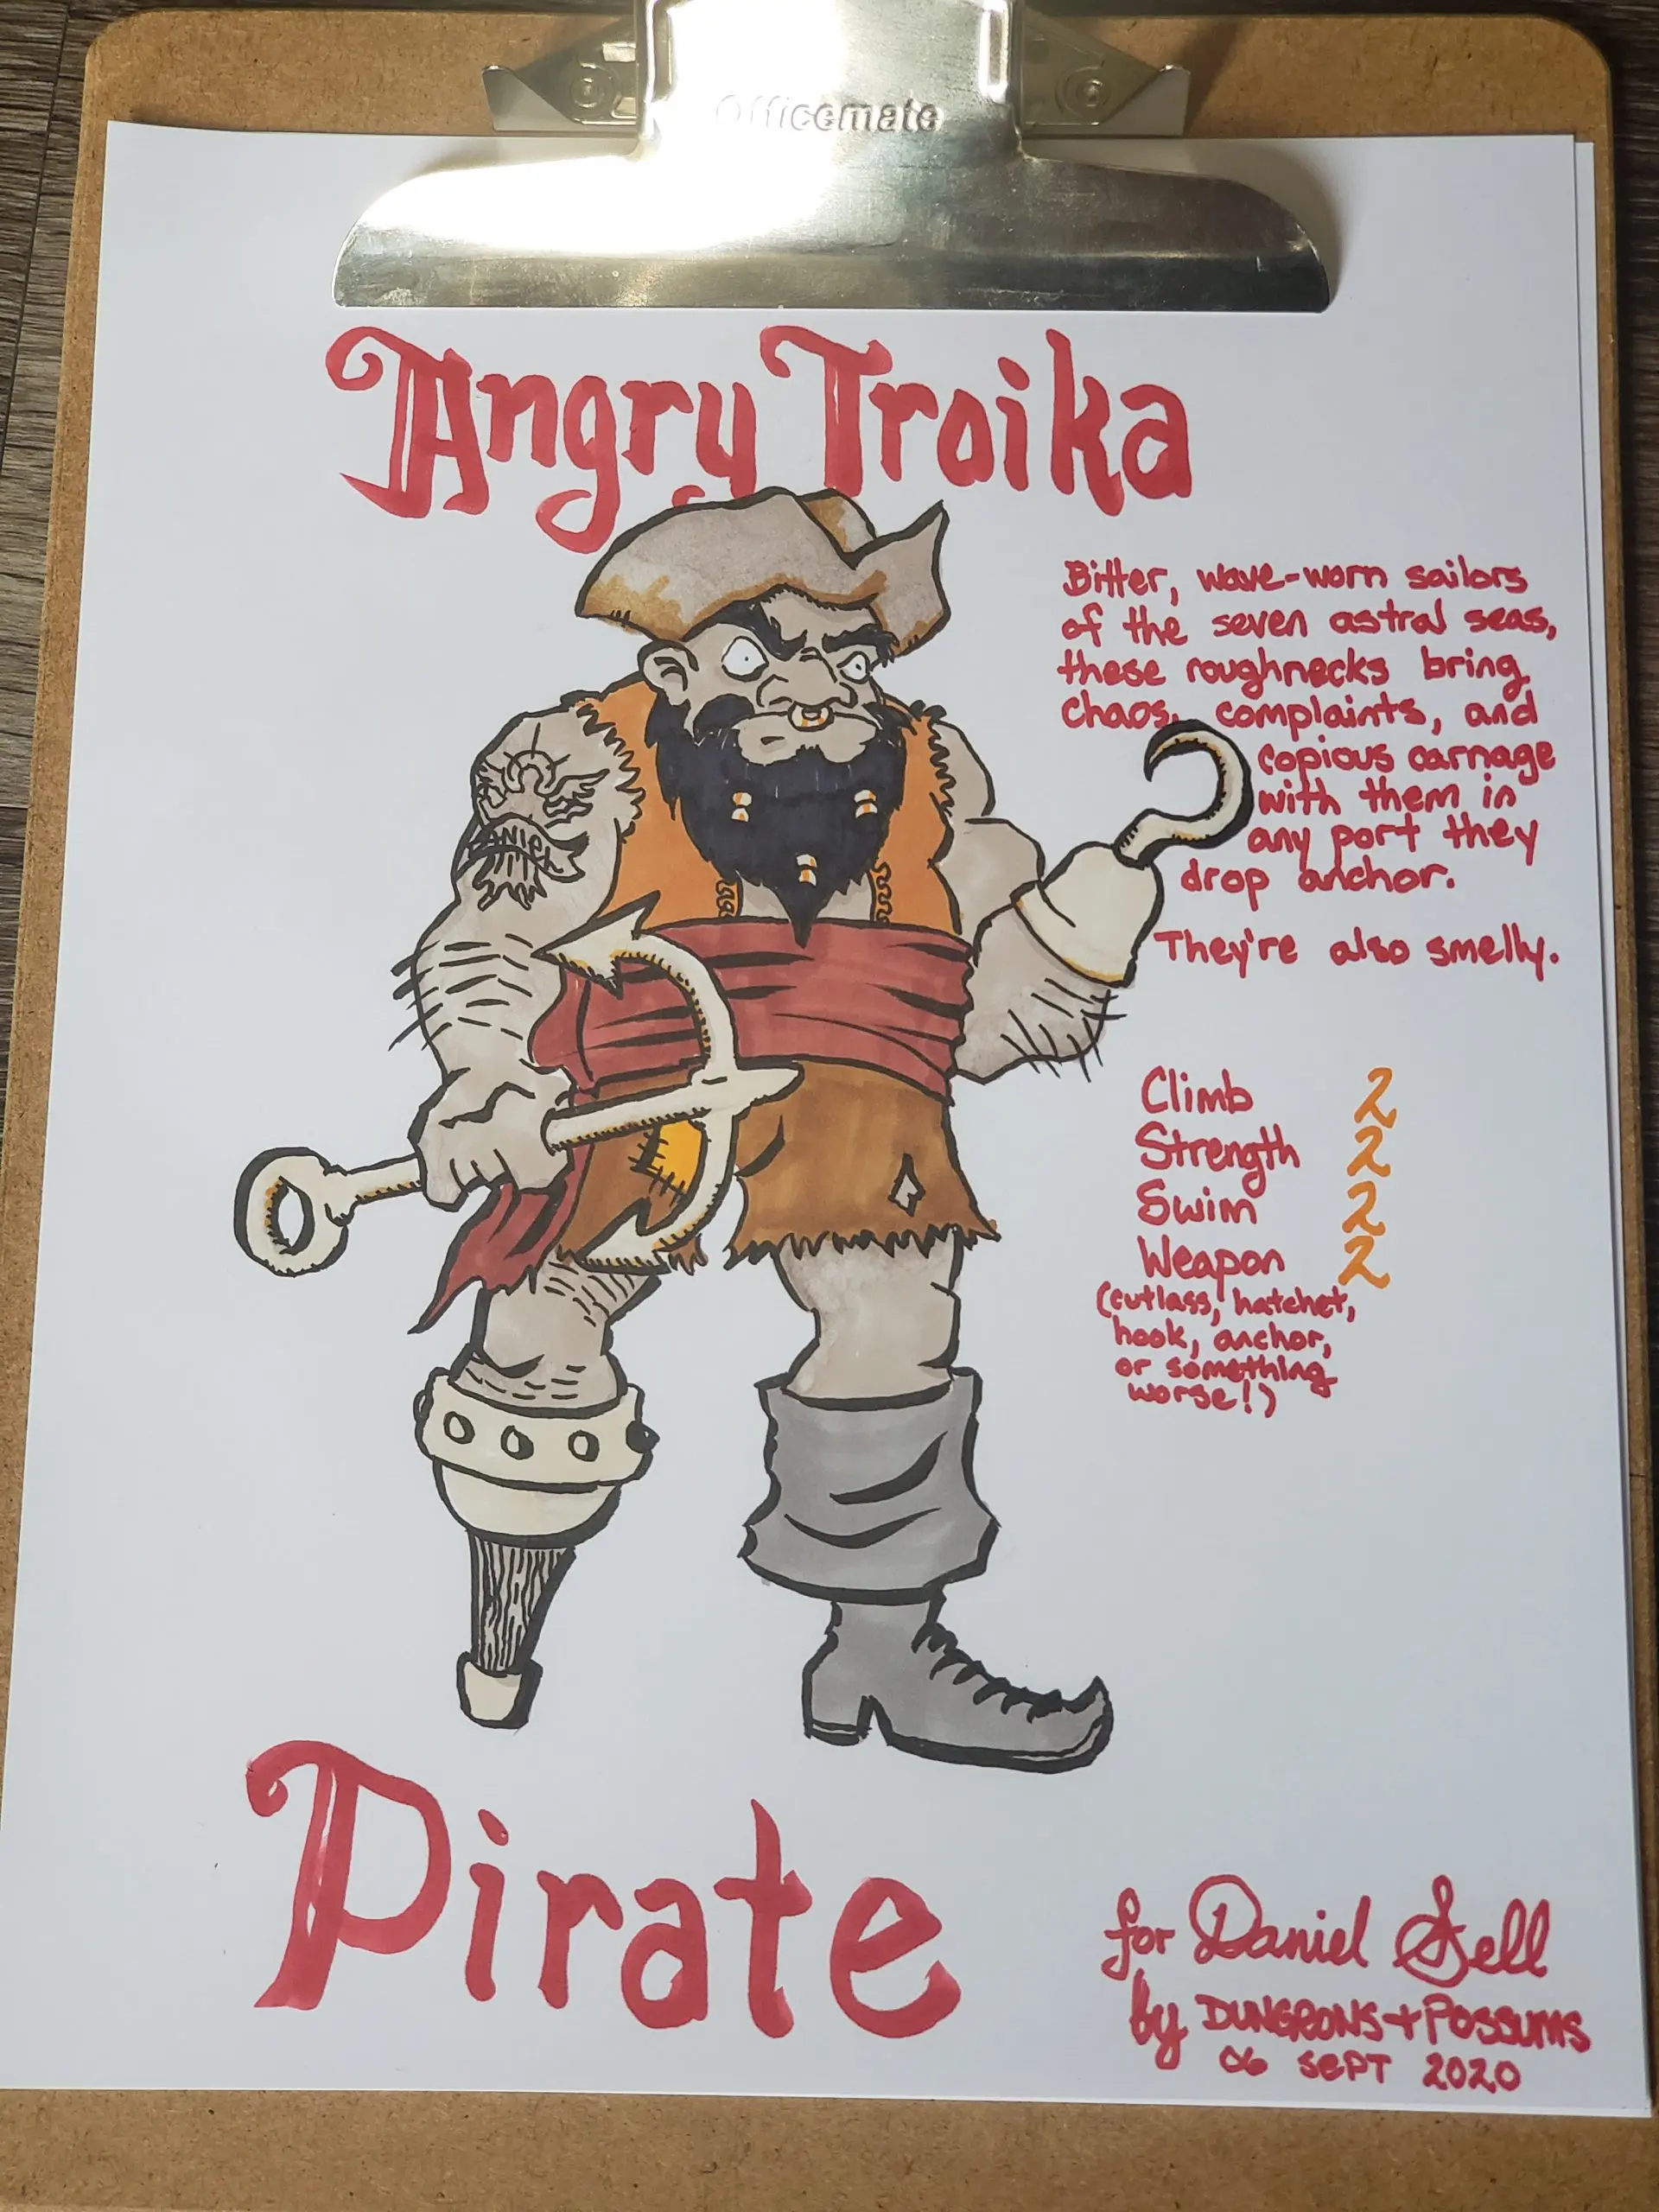 Officemate
Angry Troika
Bitter, wave-worn sailors
of the seven astral seas,
these roughnecks bring
chaos, complaints, and
copious carnage
with them in
any port they
drop anchor.
They're also smelly.
Climb 2
Strength 2
Swim 2
Weapon 2
(cutlass, hatchet,
hook, anchor,
or something
worse!)
Pirate
for Daniel Sell
by DUNGEONS + POSSUMS
06 SEPT 2020